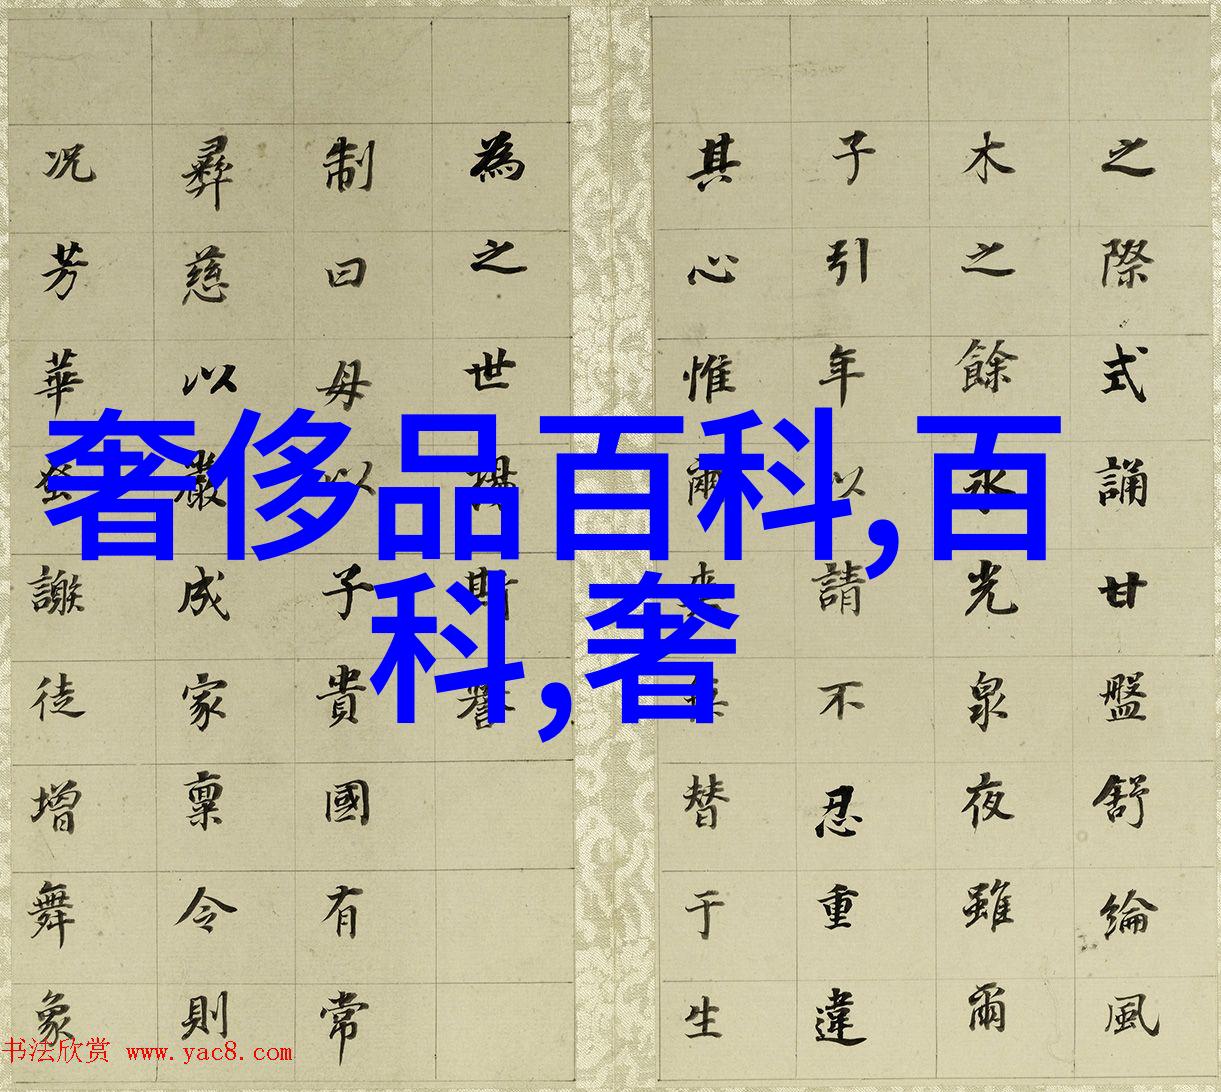 之際式誦甘盤舒綸風
木之餘永光泉夜雖爾
子引年以請不忍重違
其心惟爾來替于生
為之世斯譽
制曰母以子貴國有常
彝慈以嚴成家稟令則
況芳華謝徒增舞象
奢侈品百科,百
科,奢
书法欣赏 www.yac8.com